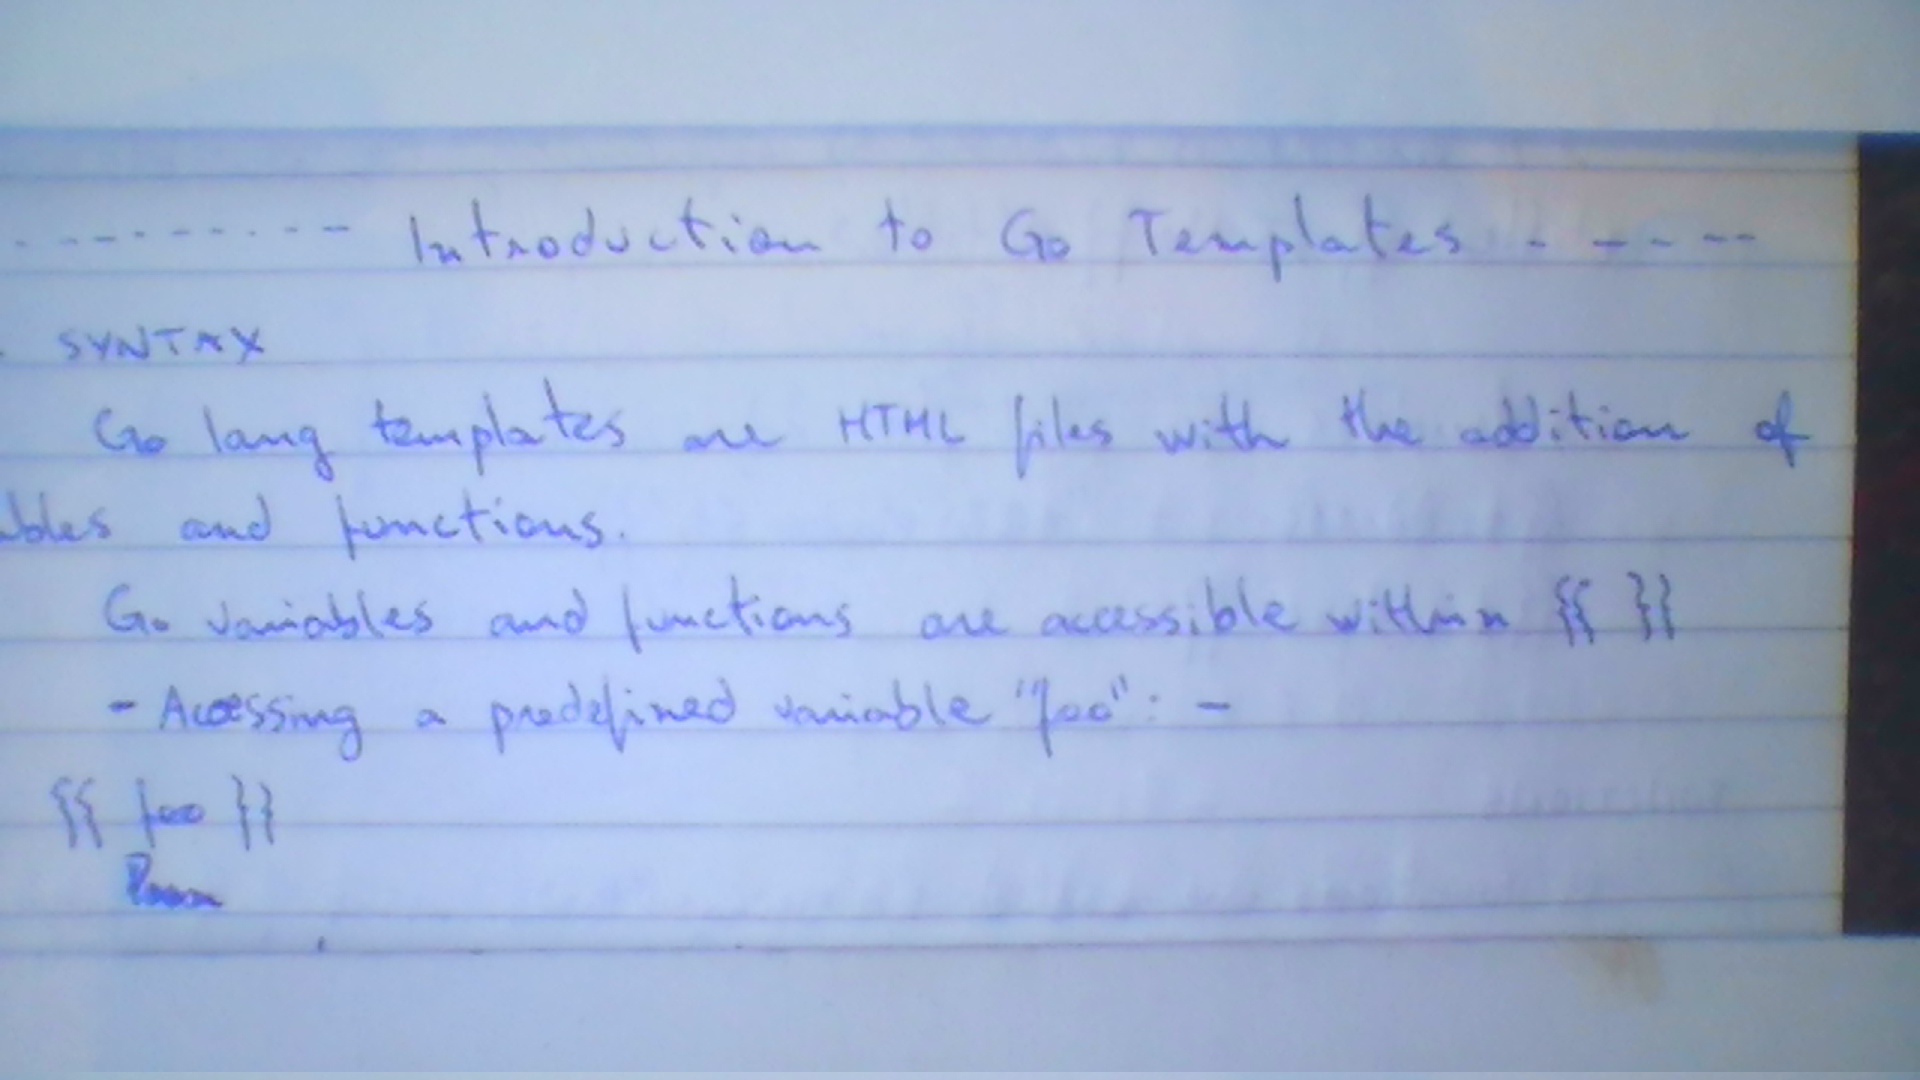 --------- Introduction to Go Templates -----
SYNTAX
Go lang templates are HTML files with the addition of
ables and functions.
Go variables and functions are accessible within {{ }}
- Accessing a predefined variable "foo": -
{{ foo }}